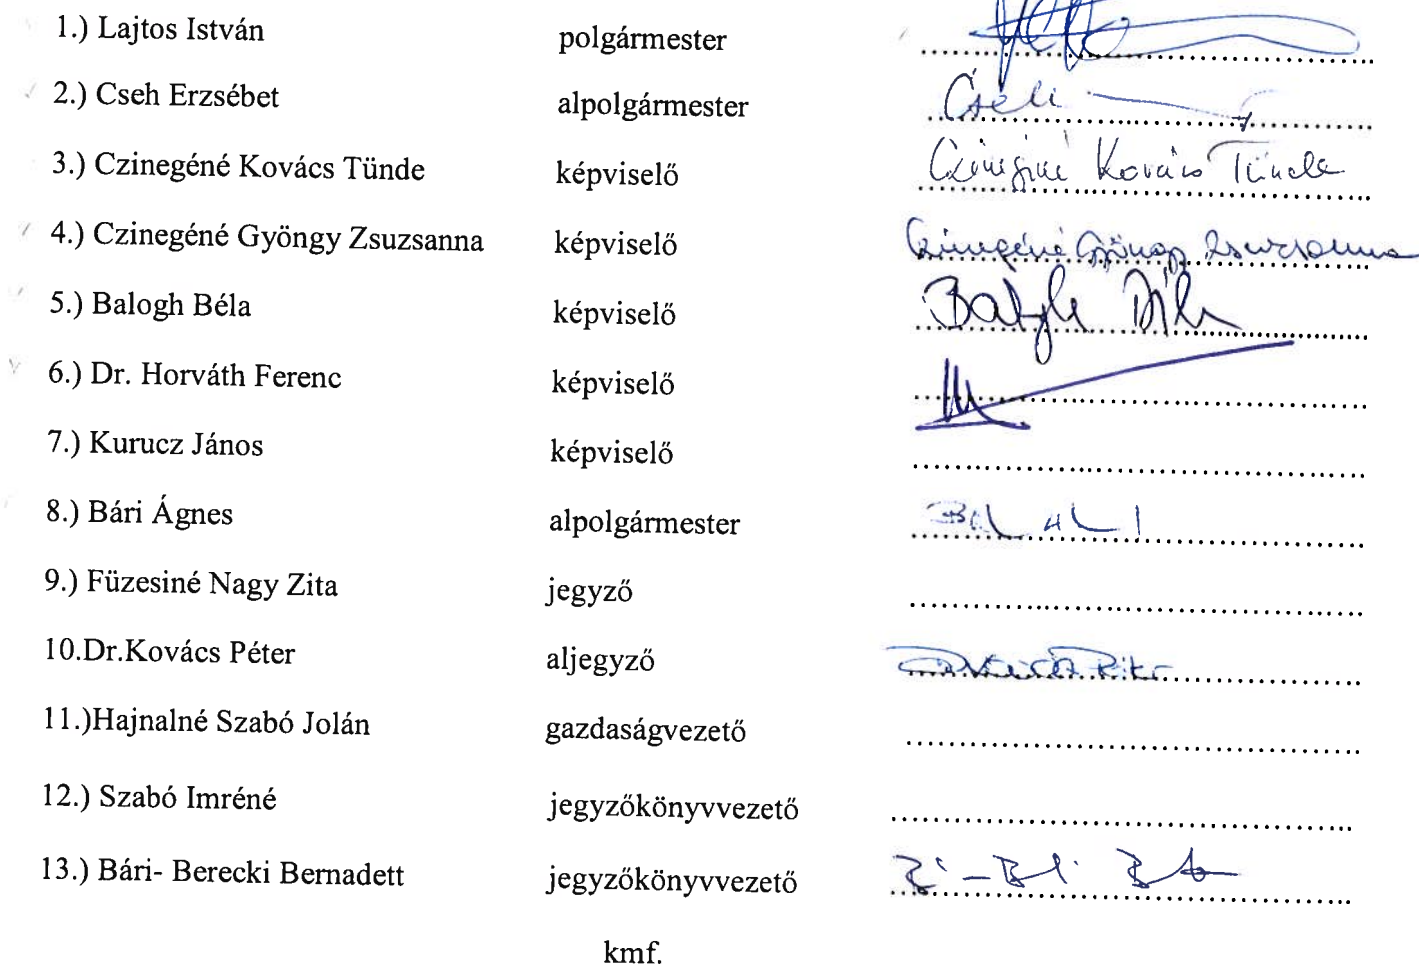 1.) Lajtos István polgármester
2.) Cseh Erzsébet alpolgármester Cseh
3.) Czinegéné Kovács Tünde képviselő Czinegéné Kovács Tünde
4.) Czinegéné Gyöngy Zsuzsanna képviselő Czinegéné Gyöngy Zsuzsanna
5.) Balogh Béla képviselő Balogh Béla
6.) Dr. Horváth Ferenc képviselő
7.) Kurucz János képviselő
8.) Bári Ágnes alpolgármester
9.) Füzesiné Nagy Zita jegyző
10.Dr.Kovács Péter aljegyző
11.)Hajnalné Szabó Jolán gazdaságvezető
12.) Szabó Imréné jegyzőkönyvvezető
13.) Bári- Berecki Bernadett jegyzőkönyvvezető
kmf.